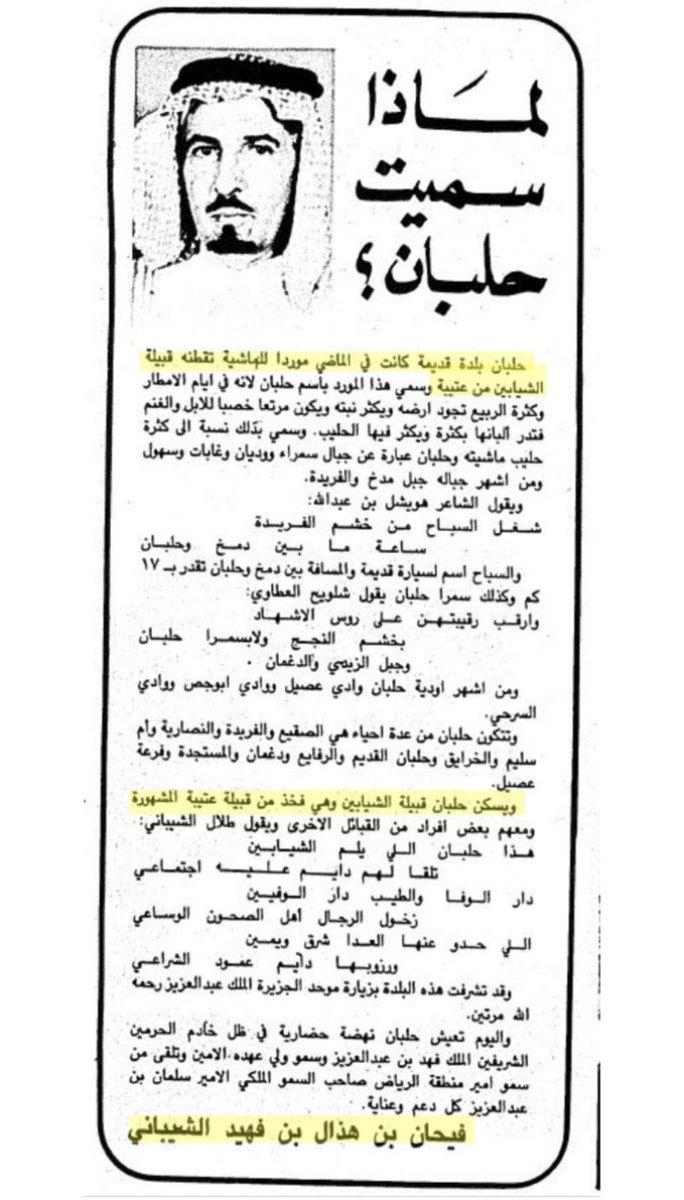 لمــاذا
سـميت
حلبـان؟
حلبان بلدة قديمة كانت في الماضي موردا للماشية تقطنه قبيلة
الشيابين من عتيبة وسمي هذا المورد باسم حلبان لانه في ايام الامطار
وكثرة الربيع تجود ارضه ويكثر نبته ويكون مرتعا خصبا للابل والغنم
فتدر البانها بكثرة ويكثر فيها الحليب. وسمي بذلك نسبة الى كثرة
حليب ماشيته وحلبان عبارة عن جبال سمراء ووديان وغابات وسهول
ومن اشهر جباله جبل مدخ والفريدة.
ويقول الشاعر هويشل بن عبدالله:
شـغـل السبـاح مـن خشـم الفـريـدة
ســاعــة مــا بــين دمــخ وحلبــان
والسباح اسم لسيارة قديمة والمسافة بين دمخ وحلبان تقدر بـ ١٧
كم وكذلك سمرا حلبان يقول شلويح العطاوي:
وارقـب رقيبتهـن علـى روس الاشهـاد
بـخشـم النجـج ولابسمـرا حلبـان
وجبل الزيدي والدغمان .
ومن اشهر اودية حلبان وادي عصيل ووادي ابوجص ووادي
السرحي.
وتتكون حلبان من عدة احياء هي الصقيع والفريدة والنصارية وأم
سليم والخرايق وحلبان القديم والرفايع ودغمان والمستجدة وفرعة
عصيل.
ويسكن حلبان قبيلة الشيابين وهي فخذ من قبيلة عتيبة المشهورة
ومعهم بعض افراد من القبائل الاخرى ويقول طلال الشيباني:
هـذا حلبـان اللـي يلـم الشيـابـين
تلقـا لـهـم دايــم علـيــه اجتمـاعـي
دار الـوفـا والطيـب دار الـوفيـين
زخـول الرجـال أهـل الصحـون الوسـاعي
اللـي حـدو عنهـا العـدا شـرق ويمـين
ورزوبـهـا دايـم عمـود الشراعـي
وقد تشرفت هذه البلدة بزيارة موحد الجزيرة الملك عبدالعزيز رحمه
الله مرتين.
واليوم تعيش حلبان نهضة حضارية في ظل خادم الحرمين
الشريفين الملك فهد بن عبدالعزيز وسمو ولي عهده الامين وتلقى من
سمو امير منطقة الرياض صاحب السمو الملكي الامير سلمان بن
عبدالعزيز كل دعم وعناية.
فيحان بن هذال بن فهيد الشيباني